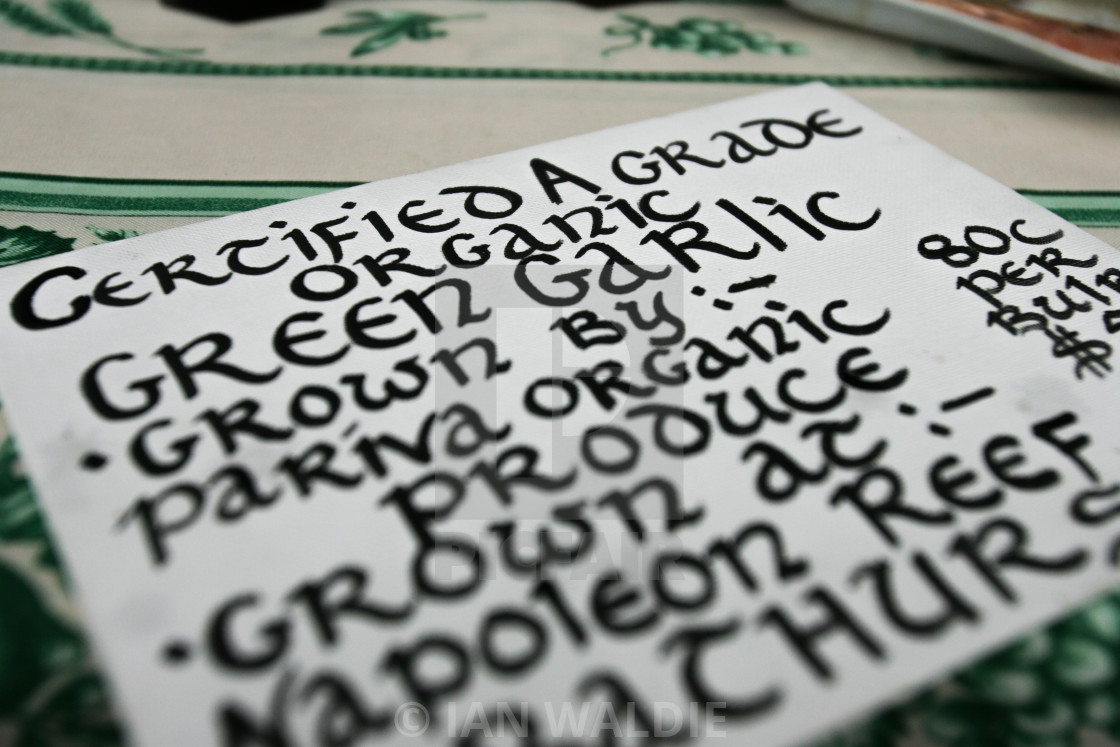 Certified A Grade
Organic
Green Garlic
• Grown By:-
Pariva Organic
Produce
• Grown at:-
Napoleon Reef
80c
per
© IAN WALDIE